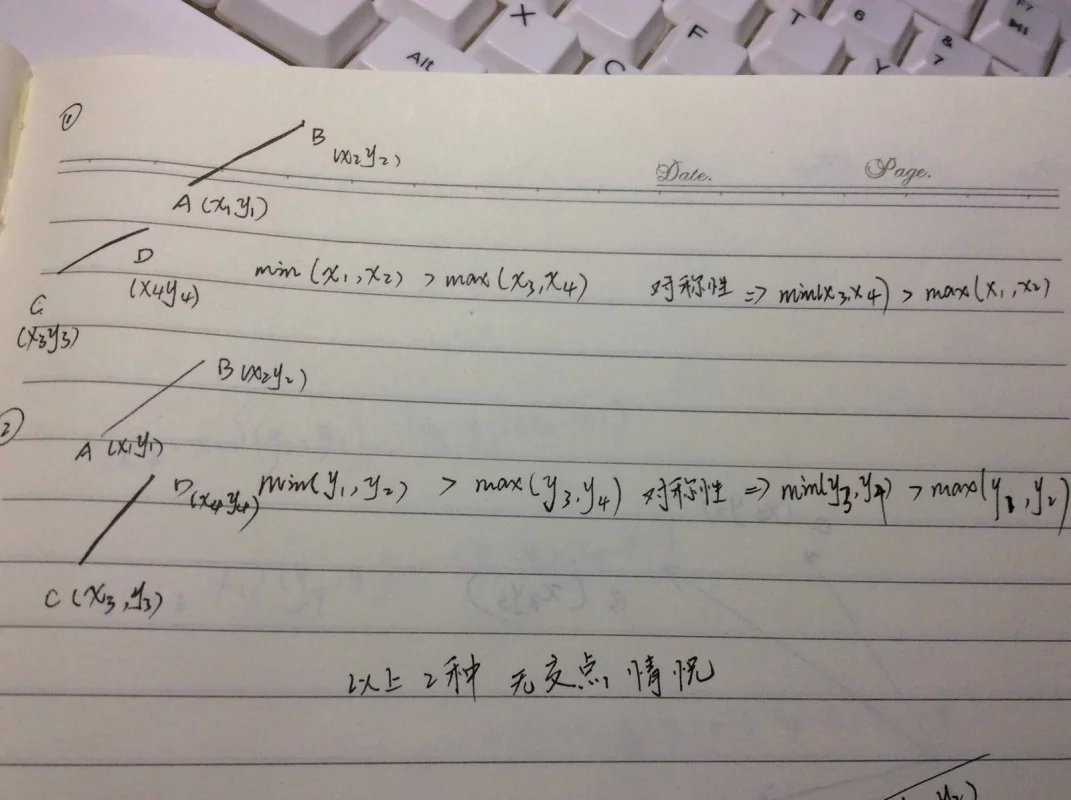 Alt X C F T Y 6 & 7 F7
①
B
(x2y2)
Date. Page.
A (x1y1)
D
(x4y4)
min (x1,x2) > max (x3,x4) 对称性 => min(x3,x4) > max(x1,x2)
C
(x3y3)
B (x2y2)
②
A (x1y1)
D (x4y4) min(y1,y2) > max(y3,y4) 对称性 => min(y3,y4) > max(y1,y2)
C (x3,y3)
以上2种 无交点 情况
y2)